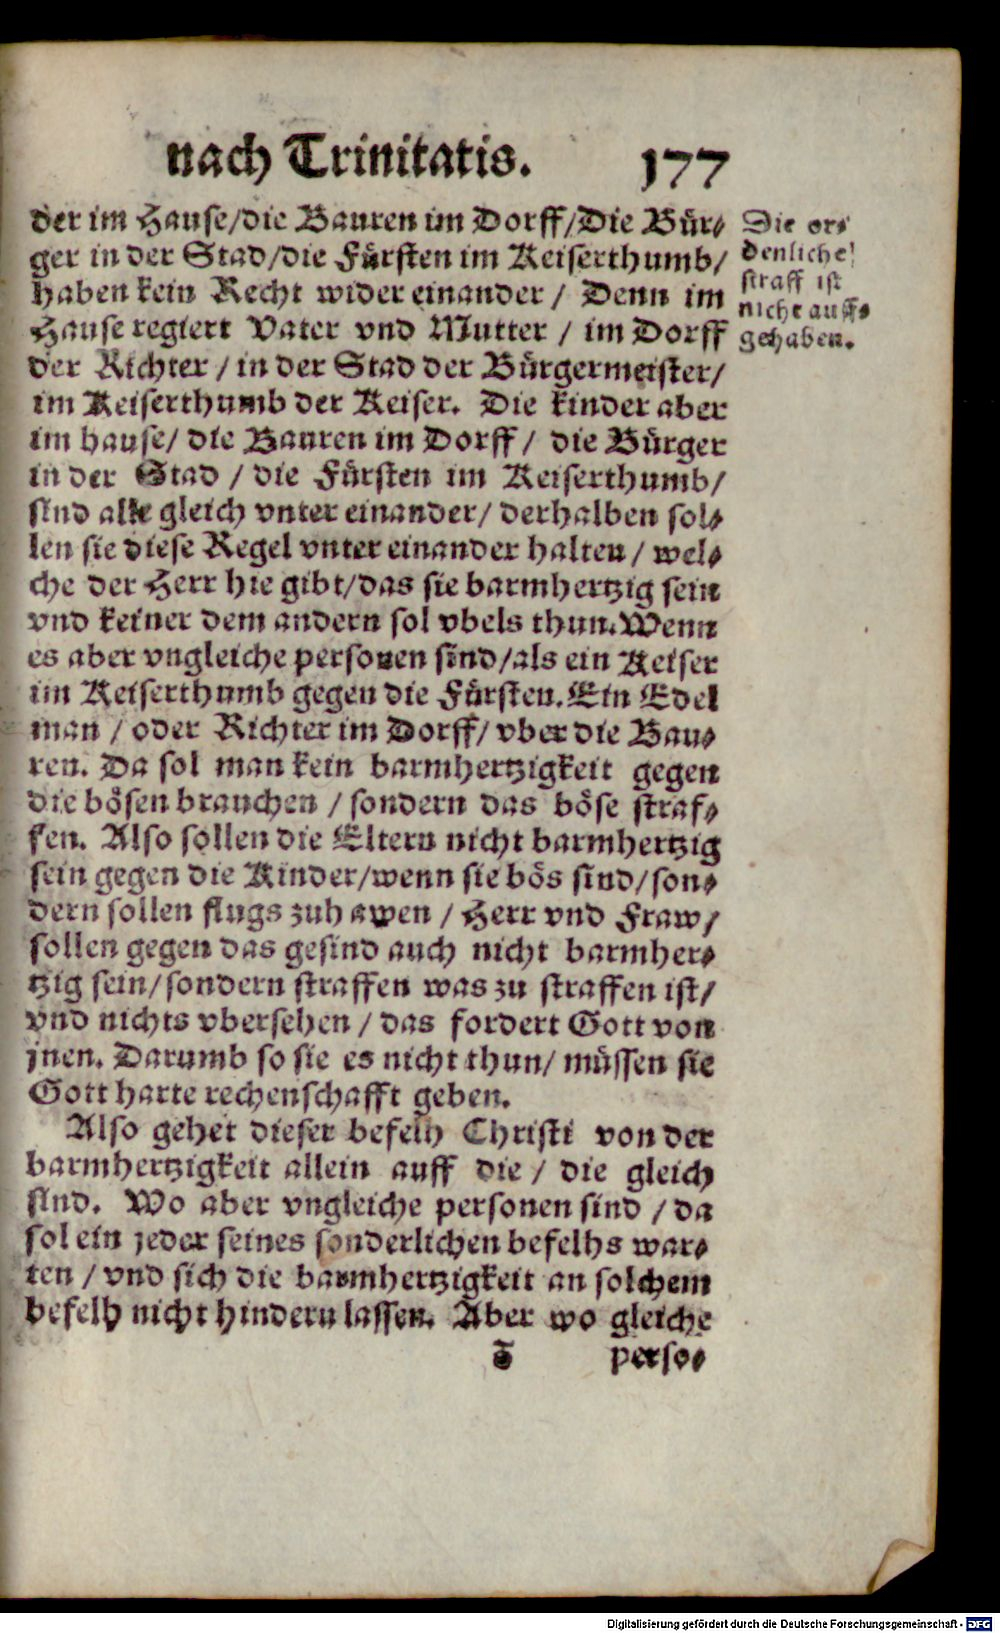 nach Trinitatis. 177
der im Hause/die Bauren im Dorff/Die Bür-
ger in der Stad/die Fürsten im Keiserthumb/
haben kein Recht wider einander / Denn im
Hause regiert Vater vnd Mutter / im Dorff
der Richter / in der Stad der Bürgermeister/
im Keiserthumb der Keiser. Die kinder aber
im hause/ die Bauren im Dorff / die Bürger
in der Stad / die Fürsten im Keiserthumb/
sind alle gleich vnter einander/ derhalben sol-
len sie diese Regel vnter einander halten / wel-
che der Herr hie gibt/das sie barmhertzig sein
vnd keiner dem andern sol vbels thun. Wenn
es aber vngleiche personen sind/als ein Keiser
im Keiserthumb gegen die Fürsten. Ein Edel
man / oder Richter im Dorff/ vber die Bau-
ren. Da sol man kein barmhertzigkeit gegen
die bösen brauchen / sondern das böse straf-
fen. Also sollen die Eltern nicht barmhertzig
sein gegen die Kinder/wenn sie bös sind/son-
dern sollen flugs zuhawen / Herr vnd Fraw/
sollen gegen das gesind auch nicht barmher-
tzig sein/sondern straffen was zu straffen ist/
vnd nichts vbersehen / das fordert Gott von
jnen. Darumb so sie es nicht thun/ müssen sie
Gott harte rechenschafft geben.
Also gehet dieser befelh Christi von der
barmhertzigkeit allein auff die / die gleich
sind. Wo aber vngleiche personen sind / da
sol ein jeder seines sonderlichen befelhs war-
ten / vnd sich die barmhertzigkeit an solchem
befelh nicht hindern lassen. Aber wo gleiche
perso-
Die or-
denliche
straff ist
nicht auff-
gehaben.
Digitalisierung gefördert durch die Deutsche Forschungsgemeinschaft - DFG